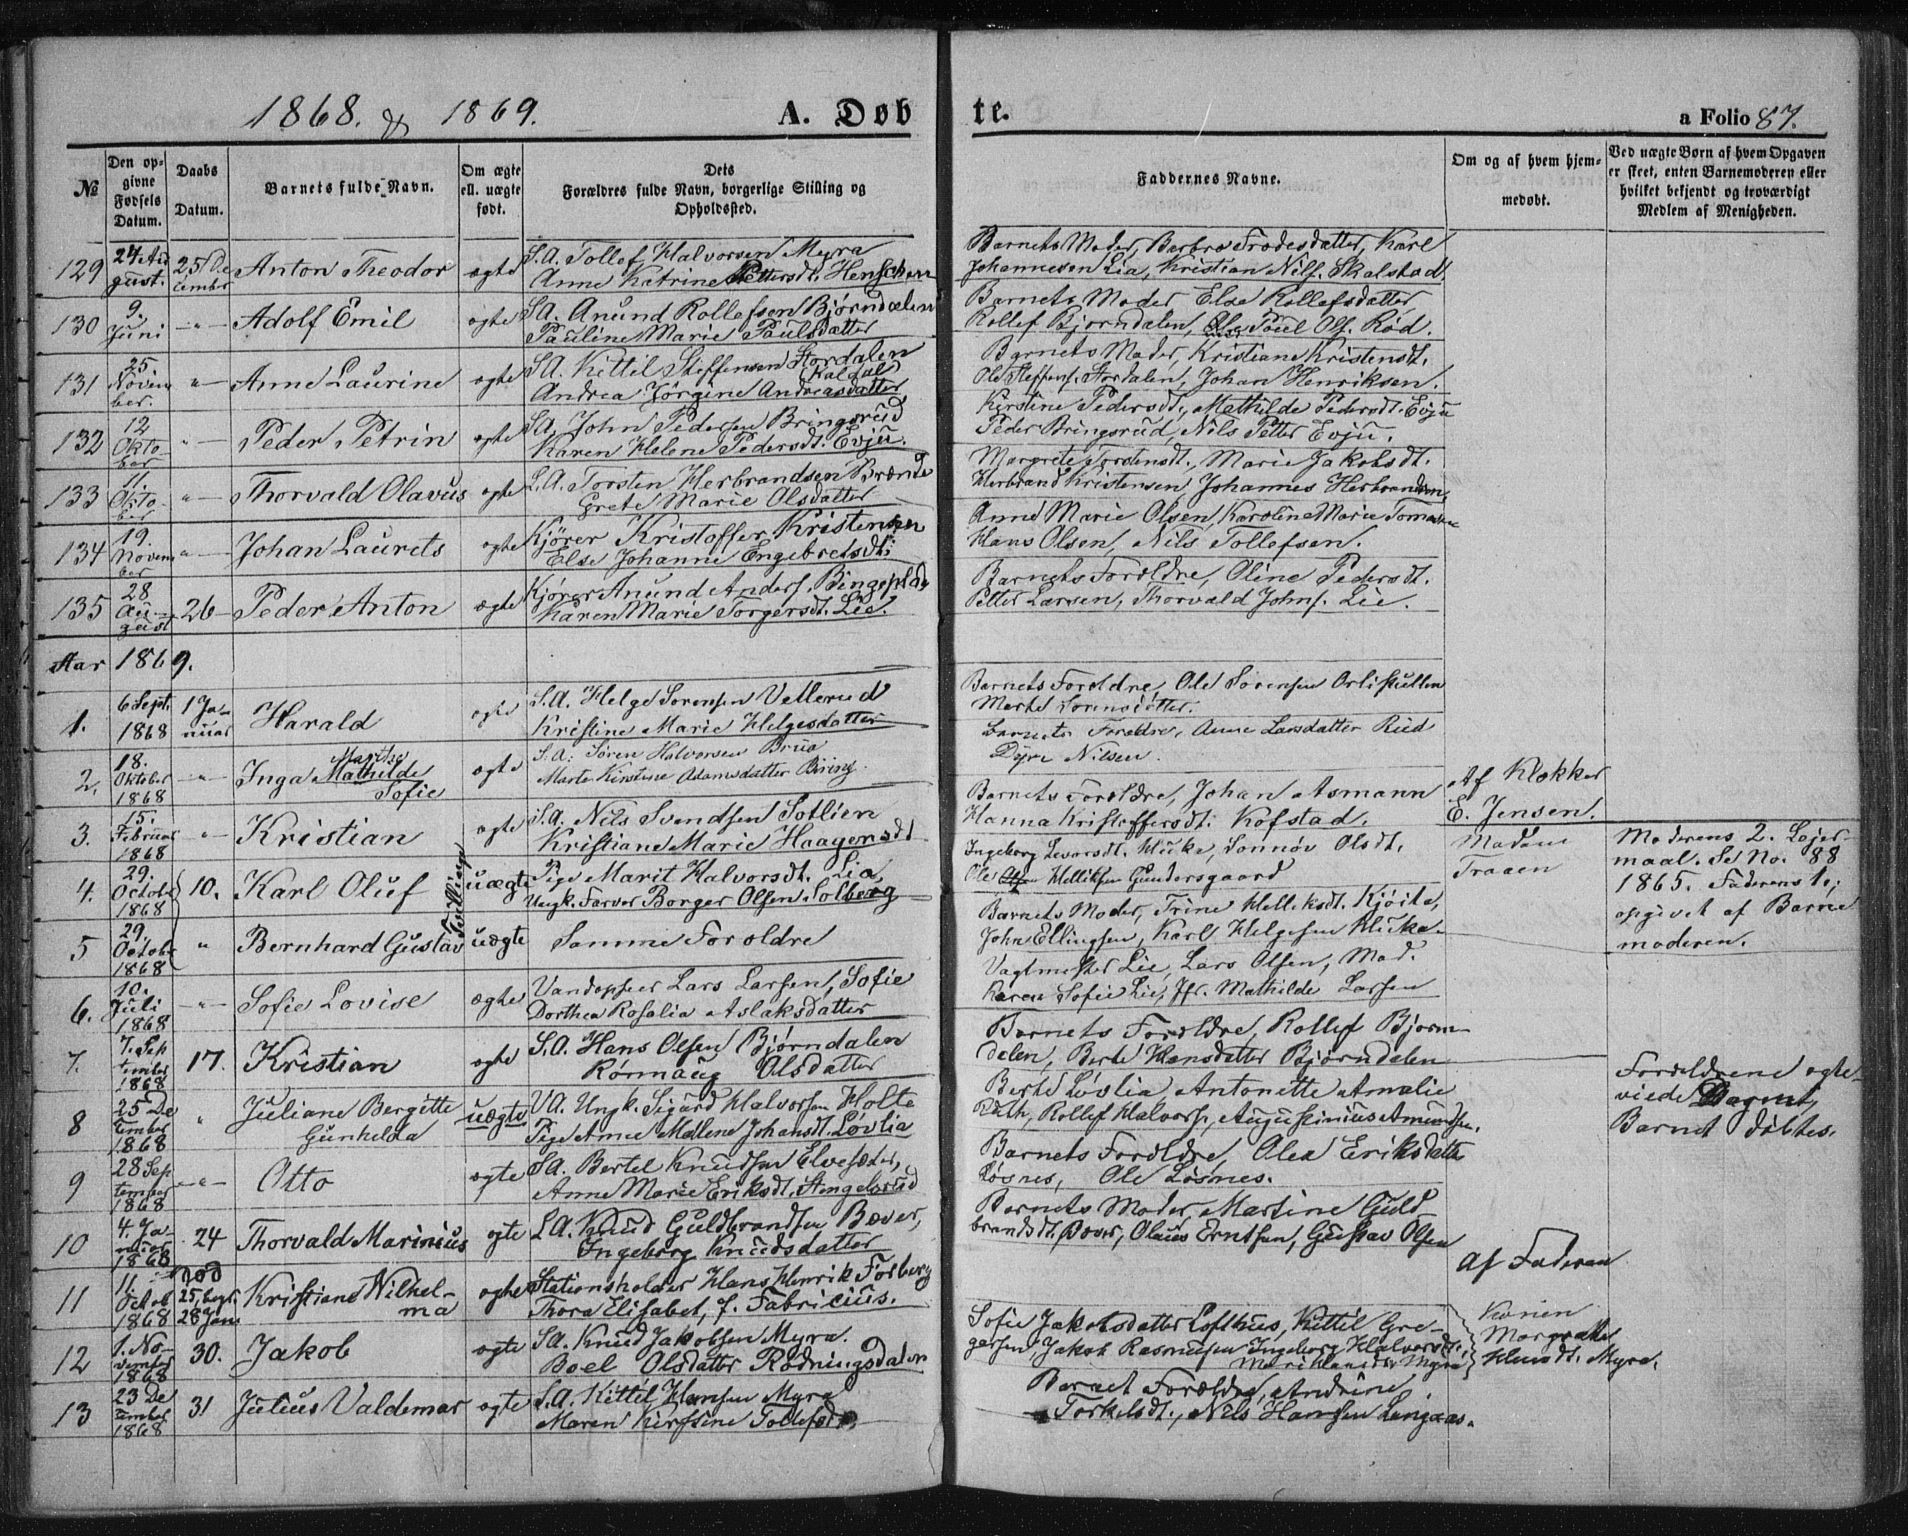 1868. & 1869.
A. Døb
te.
a Folio 87.
№
Den op-
givne
Fødsels
Datum.
Daabs
Datum.
Barnets fulde Navn.
Om ægte
ell. uægte
født.
Dets
Forældres fulde Navn, borgerlige Stilling og
Opholdssted.
Faddernes Navne.
Om og af hvem hjem-
medøbt.
Ved uægte Børn af hvem Opgaven
er skeet, enten Barnemoderen eller
hvilket bekjendt og troværdigt
Medlem af Menigheden.
129
24 Au
gust.
25 De
cember
Anton Theodor
ægte
S.A. Tollef Halvorsen Myra
Anne Katrine Pettersdt. Henschen
Barnets Moder, Barbro Frodesdatter, Karl
Johannesen Lia, Kristian Nils. Skalstad
130
9.
Juni
-"-
Adolf Emil
ægte
S.A. Anund Rollefsen Bjørndalen
Pauline Marie Paulsdatter
Barnets Moder Else Rollefsdatter
Rollef Bjørndalen, Poul Ols. Rød.
131
25
Novem
ber.
"-
Anne Laurine
ægte
S.A. Kittil Steffensen Stordalen
(Kaldal)
Andrea Jørgine Andreasdatter
Barnets Moder, Kristiane Kristensdt.
Ole Steffens. Stordalen, Johan Henriksen.
132
12
Okto-
ber
"-
Peder Petrin
ægte
S.A. John Pedersen Bringsrud
Karen Helene Pedersdt. Evju.
Kirstine Pedersdt., Mathilde Pedersdt. Evju
Peder Bringsrud, Nils Petter Evju.
133
11.
Okto-
ber
"-
Thorvald Olavus
ægte
L.A. Torsten Herbrandsen Brænde
Grete Marie Olsdatter
Margrete Torstensdt., Marie Jakobsdt.
Herbrand Kristensen, Johannes Herbrandsen,
134
19.
Novem
ber
"-
Johan Laurets
ægte
Kjører Kristoffer Kristensen
Else Johanne Engebretsdt.
Anne Marie Olsen, Karoline Marie Tomasen
Hans Olsen, Nils Tollefsen.
135
28
Au-
gust
26
Peder Anton
ægte
Kjører Anund Anders. Bingeplads
Karen Marie Torgersdt. Lie.
Barnets Forældre, Oline Pedersdt.
Petter Larsen, Thorvald Johns. Lie.
Aar 1869.
1.
6 Sept.
1868
1 Ja-
nuar
Harald
ægte
S.A. Helge Sorensen Vellerud
Kristine Marie Helgesdatter
Barnets Forældre, Ole Sørensen
Marte Sorensdatter.
2.
18.
Oktober
1868
-"-
Marthe
Inga Mathilde
Sofie
ægte
S.A. Søren Halvorsen Brua
Marte Kirstine Adamsdatter Biring
Barnets Forældre, Anne Larsdatter Rud
Dyre Nilsen.
3.
15.
Februar
1868
"-
Kristian
ægte
S.A. Nils Svendsen Solliein
Kristiane Marie Haagensdt
Barnets Forældre, Johan Asmann
Hanna Kristoffersdt. Kofstad.
Af Klokker
E. Jensen.
4.
29.
Octobr
1868
10.
Karl Oluf
Tvillinger
uægte
Pige Marit Halvorsdt. Lia,
Ungk. Farver Borger Olsen Solberg
Ingeborg Levorsdt. Huka, Sønnøv Olsdt.
Ole Helliksen Gundersgaard
Madam
Traaen
Moderens 2. Lejer
maal. Se No. 88
1865. Faderens 1.,
opgivet af Barne
moderen.
5
29.
Octobr
1868
"
Bernhard Gustav
uægte
Samme Forældre
Barnets Moder, Trine Helliksdt. Kjøita,
John Ellingsen, Karl Helgesen Huka.
6.
10.
Juli
1868
-"-
Sofie Lovise
ægte
Vandopseer Lars Larsen, Sofie
Dorthea Rosalia Aslaksdatter
Vagtmester Lie, Lars Olsen, Mad.
Karen Sofie Lie, Jfr. Mathilde Larsen
7.
7. Sep
tember
1868
17.
Kristian
ægte
S.A. Hans Olsen Bjørndalen
Rønnaug Olsdatter
Barnets Forældre, Rollef Bjørn-
dalen, Berte Hansdatter Bjørndalen
8
25 De
cember
1868
"
Juliane Bergitte
Gunhelda
uægte
V.A. Ungk. Sigurd Halvorsen Holte
Pige Anne Malene Johansdt. Løvlia
Berte Løvlia, Antonette Amalie
Ruth, Rollef Halvorsn, Augustinius Amundsen.
Forældrene ægte-
viede Dagen,
Barnet døbtes.
9
28 Sep
tember
1868
-"-
Otto
ægte
S.A. Bertel Knudsen Elvesæter,
Anne Marie Eriksdt. Stengelsrud
Barnets Forældre, Olea Eriksdatter
Løsnes, Ole Løsnes.
10
4. Ja
nuar
1868
24
Thorvald Marinius
ægte
L.A. Knud Guldbrandsen Bæver,
Ingeborg Knudsdatter
Barnets Moder, Martine Guld
brandsdt. Bæver, Olaus Erntsen, Gustav Olsen
11
11.
Octob
1868
Død
25, begr.
28 Jan
Kristiane Vilhel-
ma
ægte
Stationsholder Hans Henrik Forberg
Thora Elisabet, f. Fabricius.
Af Faderen
12
1. No-
vember
1868
30.
Jakob
ægte
S.A. Knud Jakobsen Myra.
Boel Olsdatter Rødningsdalen
Sofie Jakobsdatter Lofthus, Kittil Gre-
gersen, Jakob Rasmusen, Ingeborg Halvorsdt.
Mari Hansdtr Myra
Konen
Margrethe
Hansdt. Myra.
13
23 De
cember
1868
31
Julius Valdemar
ægte
S.A. Kittil Hansen Myra
Maren Kirstine Tollefsdt
Barnet Forældre, Andrine
Torkelsdt., Nils Hansen Langaas.